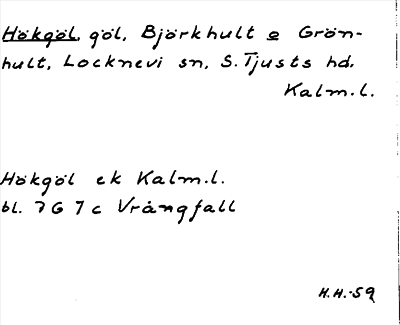 Hökgöl, göl, Björkhult o Grön-
hult, Locknevi sn, S. Tjusts hd,
Kalm.l.
Hökgöl ek Kalm.l.
bl. 7 G 7 c Vrångfall
H.H.-59